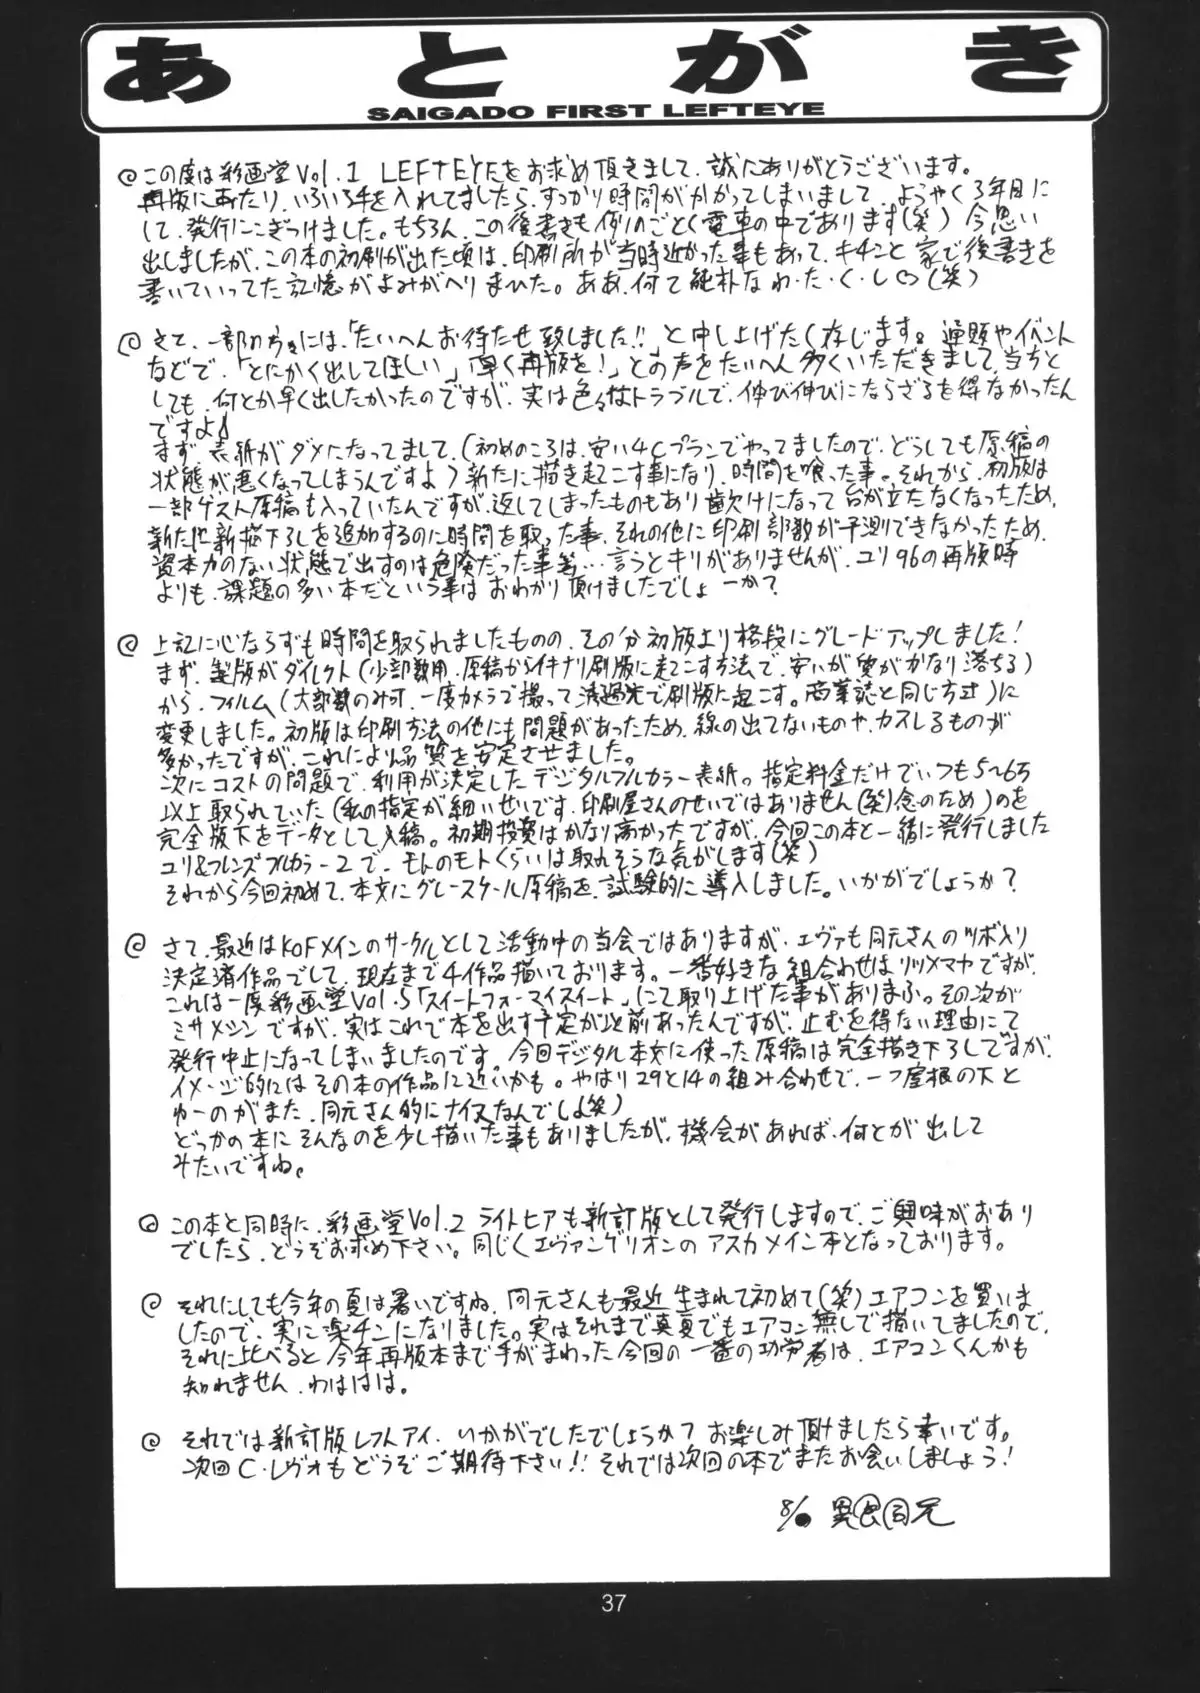 あとがき
SAIGADO FIRST LEFTEYE
@この度は彩画堂Vol.1 LEFTEYEをお求め頂きまして、誠にありがとうございます。
再版にあたり、いろいろ手を入れてましたら、すっかり時間がかかってしまいまして、ようやく3年目に
して、発行にこぎつけました。もちろん、この後書きも例のごとく電車の中であります(笑) 今思い
出しましたが、この本の初刷が出た頃は、印刷所が当時近かった事もあって、キチンと家で後書きを
書いていってた記憶がよみがえりました。ああ、何て純朴なわ・た・く・し♡(笑)
@さて、一部の方々には、「たいへんお待たせ致しました!!」と申し上げたく存じます。通販やイベント
などで、「とにかく出してほしい」「早く再版を!」との声をたいへん多くいただきまして、当方と
しても、何とか早く出したかったのですが、実は色々なトラブルで、伸び伸びにならざるを得なかったん
ですよ
まず、表紙がダメになってまして、(初めのころは、安い4Cプランでやってましたので、どうしても原稿の
状態が悪くなってしまうんですよ)新たに描き起こす事になり、時間を喰った事。それから、初版は
一部ゲスト原稿も入っていたんですが、返してしまったものもあり歯欠けになって台が立たなくなったため、
新たに新描下ろしを追加するのに時間を取った事、その他に印刷部数が予測できなかったため、
資本力のない状態で出すのは危険だった事等…言うとキリがありませんが、ユリ96の再版時
よりも、課題の多い本だという事はおわかり頂けましたでしょーか?
@上記に心ならずも時間を取られましたものの、その分初版より格段にグレードアップしました!
まず、製版がダイレクト(少部数用、原稿からイキナリ刷版に起こす方法で、安いが質がかなり落ちる)
から、フィルム(大部数のみ可、一度カメラで撮って透過光で刷版に起こす。商業誌と同じ方式)に
変更しました。初版は印刷方法の他にも問題があったため、線の出てないものや、カスレるものが
多かったですが、これにより品質を安定させました。
次にコストの問題で、利用が決定したデジタルフルカラー表紙。指定料金だけでいつも5~6万
以上取られていた(私の指定が細いせいです、印刷屋さんのせいではありません(笑)念のため)のを
完全版下をデータとして入稿。初期投資はかなり高かったですが、今回この本と一緒に発行しました
ユリ&フレンズフルカラー2で、モトのモトくらいは取れそうな気がします(笑)
それから今回初めて、本文にグレースケール原稿を、試験的に導入しました。いかがでしょうか?
@さて、最近はKOFメインのサークルとして活動中の当会ではありますが、エヴァも同元さんのツボ入り
決定済作品でして、現在まで4作品描いております。一番好きな組合わせはリツ×マヤですが、
これは一度彩画堂Vol.5「スイートフォーマイスイート」にて取り上げた事がありまふ。その次が
ミサ×シンですが、実はこれで本を出す予定が以前あったんですが、止むを得ない理由にて
発行中止になってしまいましたのです。今回デジタル本文に使った原稿は完全描き下ろしですが、
イメージ的にはその本の作品に近いかも。やはり29と14の組み合わせで、一つ屋根の下と
ゆーのがまた、同元さん的にナイスなんでしょ(笑)
どっかの本にそんなのを少し描いた事もありましたが、機会があれば、何とか出して
みたいですね。
@この本と同時に、彩画堂Vol.2 ライトヒアも新訂版として発行しますので、ご興味がおあり
でしたら、どうぞお求め下さい。同じくエヴァンゲリオンのアスカメイン本となっております。
@それにしても今年の夏は暑いですね、同元さんも最近生まれて初めて(笑)エアコンを買いま
したので、実に楽チンになりました。実はそれまで真夏でもエアコン無しで描いてましたので、
それに比べると今年再版本まで手がまわった今回の一番の功労者は、エアコンくんかも
知れません、わははは。
@それでは新訂版レフトアイ、いかがでしたでしょうか?お楽しみ頂けましたら幸いです。
次回C・レヴォもどうぞご期待下さい!!それでは次回の本でまたお会いしましょう!
37